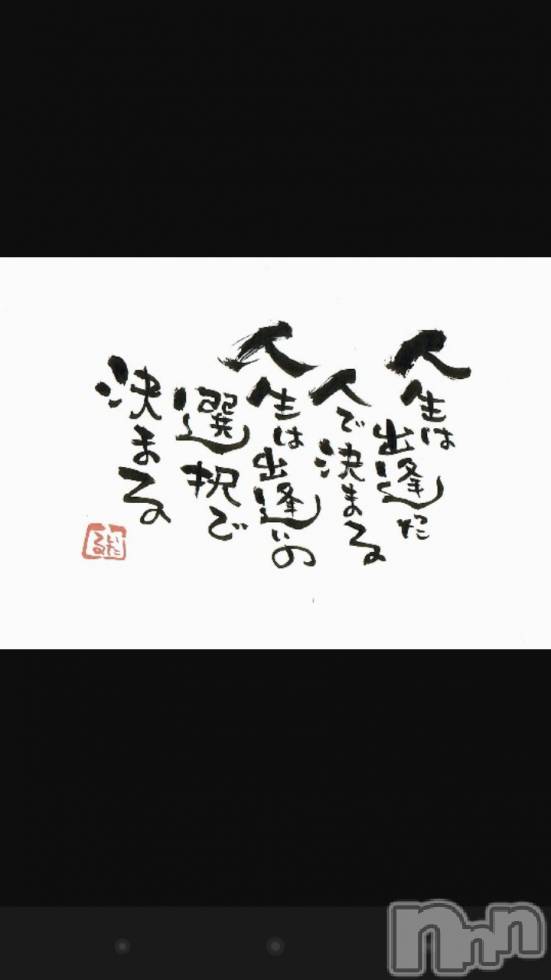 人生は
出逢った
人で決まる
人生は
出逢いの
選択で
決まる
nnn